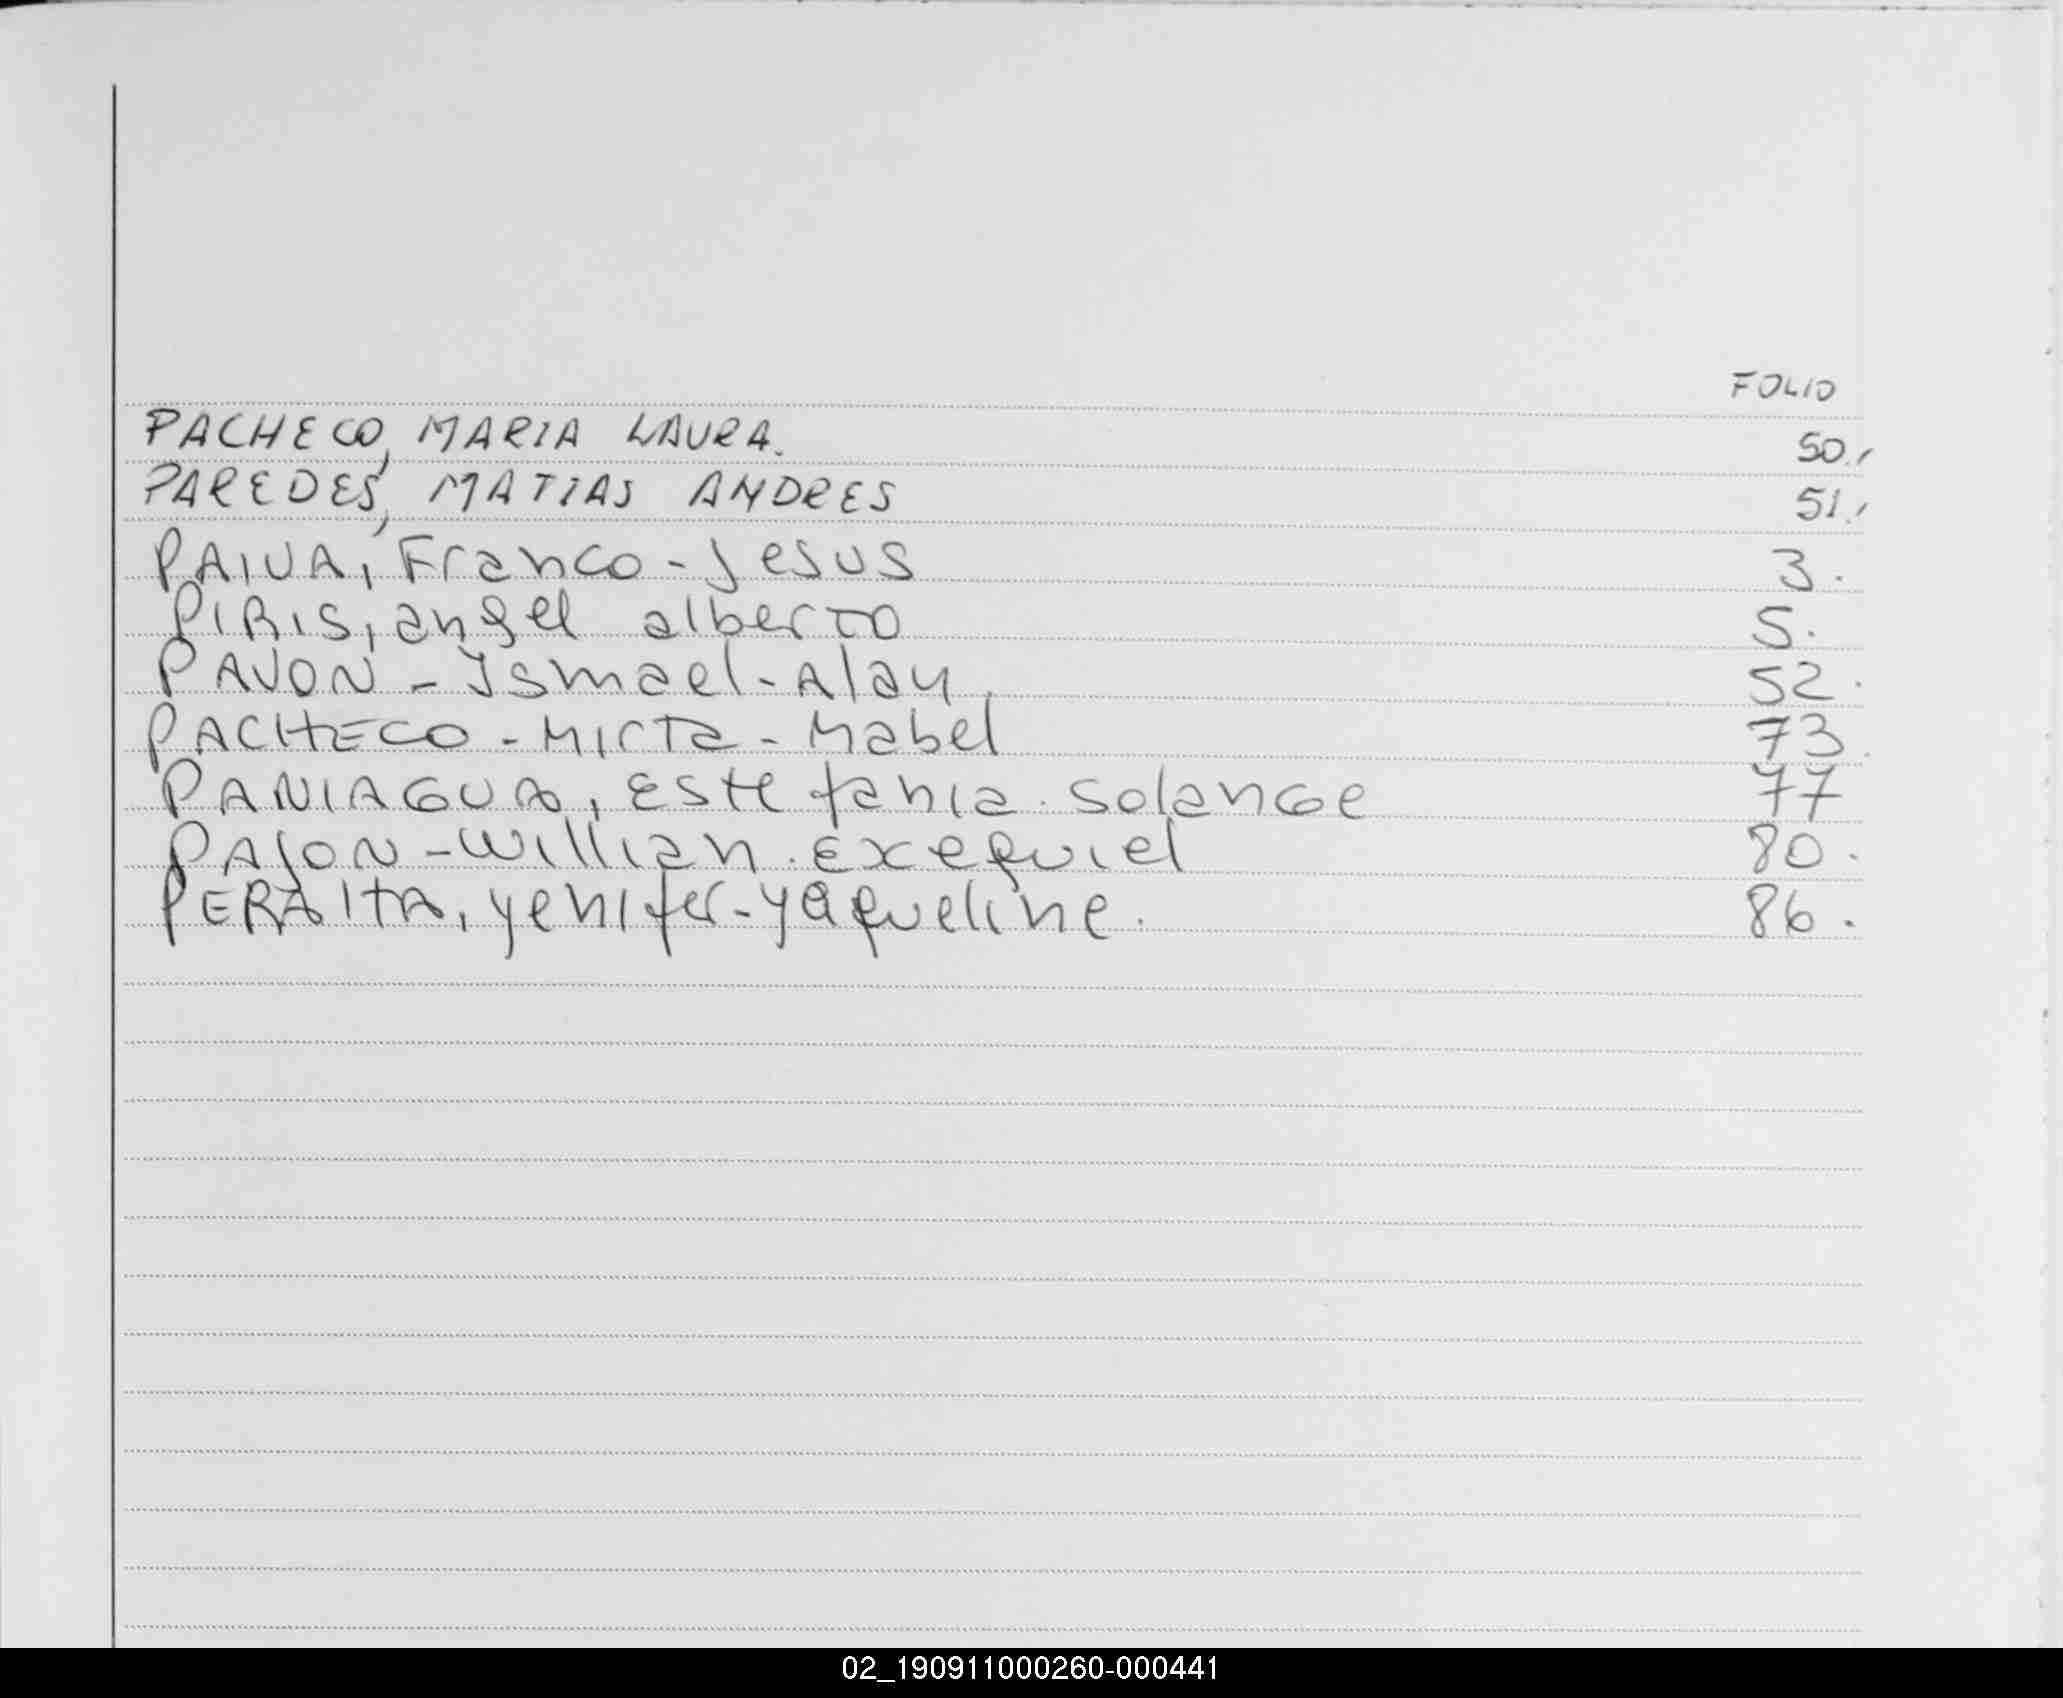 FOLIO
PACHECO, MARIA LAURA. 50.,
PAREDES, MATIAS ANDRES 51.,
PAIVA, Franco - Jesus 3.
PIRIS, angel alberto 5.
PAVON - Ismael - Alan. 52.
PACHECO - Mirta - Mabel 73.
PANIAGUA, Estefania. Solange 77
PAJON - Willian. Exequiel 80.
PERAlTA, yenifer - yaqueline. 86.
02_190911000260-000441